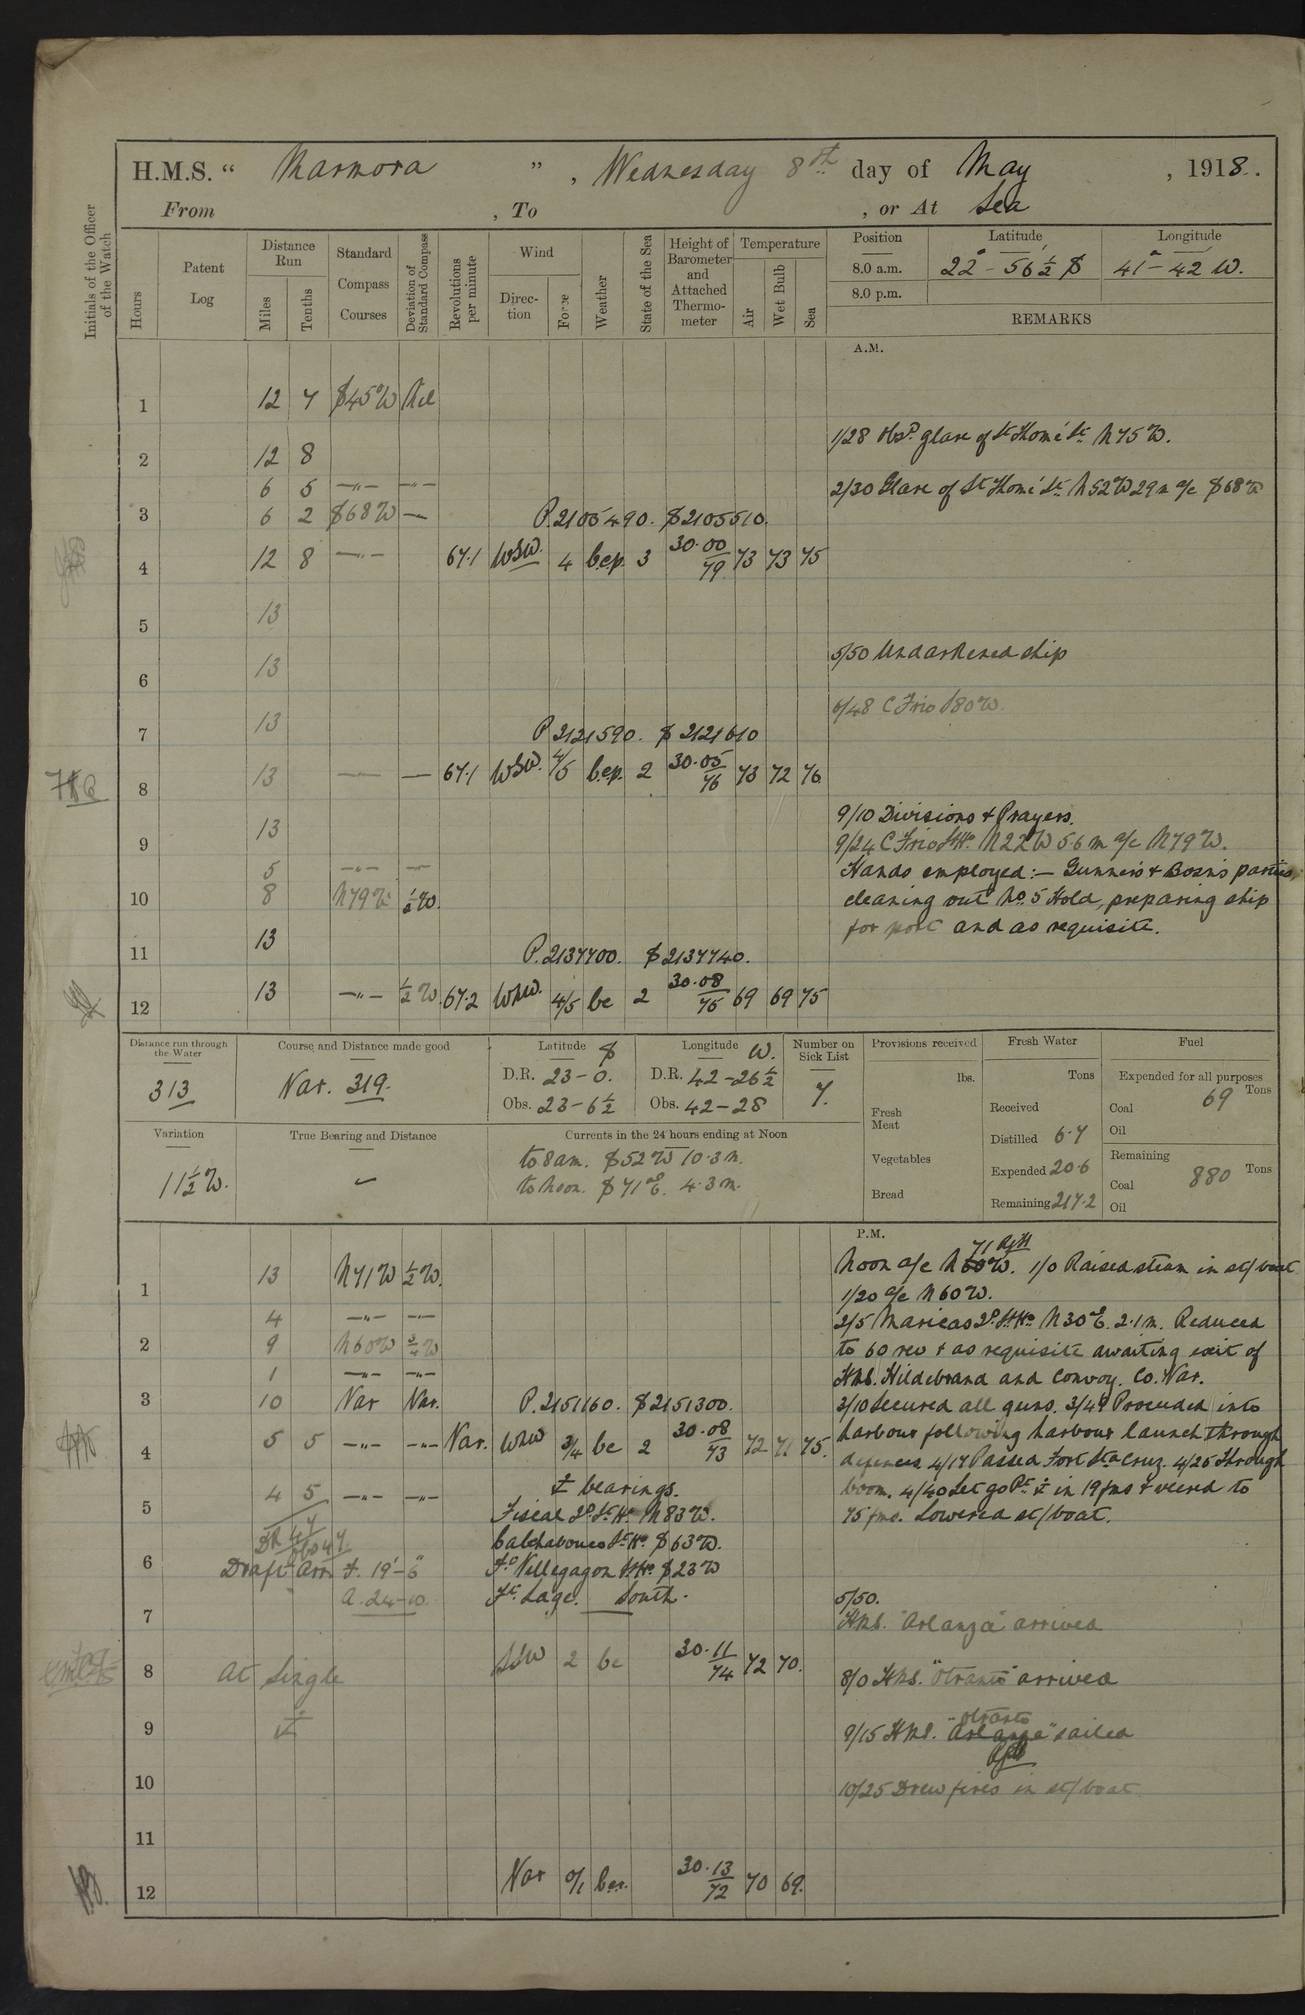 H.M.S. “ Marmora ” , Wednesday 8th day of May , 1918.
From , To , or At Sea
Initials of the Officer of the Watch
Hours
Patent Log
Distance Run
Miles
Tenths
Standard Compass Courses
Deviation of Standard Compass
Revolutions per minute
Wind
Direction
Force
Weather
State of the Sea
Height of Barometer and Attached Thermometer
Temperature
Air
Wet Bulb
Sea
Position Latitude Longitude
8.0 a.m. 22° - 56½' S 41° - 42' W.
8.0 p.m.
REMARKS
A.M.
1 12 7 S45°W Nil
1/28 Obsd glare of St Thomé Lt N75W.
2 12 8
6 5 —"— —"—
2/30 Glare of St Thomé Lt N52W 29m a/c S68W
3 6 2 S68W — P.2105490. S2105510.
4 12 8 —"— 67.1 WSW. 4 b.c.p. 3 30.00/79 73 73 75
5 13
5/50 Undarkened ship
6 13
6/48 C Frio S80W.
7 13 P 2121590. S 2121610
8 13 — — 67.1 WSW. 4/5 b.c.p. 2 30.05/76 73 72 76
9/10 Divisions & Prayers.
9 13
9/24 C Frio Lt Ho N22W 5.6m a/c N79W.
5 —"— —
Hands employed:— Gunner's & Bosn's parties,
10 8 N79W ½W.
cleaning out No 5 Hold, preparing ship
for port and as requisite.
11 13 P.2137700. S2137740.
12 13 —"— ½W. 67.2 WNW. 4/5 bc 2 30.08/75 69 69 75
Distance run through the Water
313
Course and Distance made good
Var. 319.
Latitude S
D.R. 23-0.
Obs. 23-6½
Longitude W.
D.R. 42-26½
Obs. 42-28
Number on Sick List
7.
Provisions received
lbs.
Fresh Meat
Vegetables
Bread
Fresh Water
Tons
Received
Distilled 6.7
Expended 20.6
Remaining 217.2
Fuel
Expended for all purposes
Coal 69 Tons
Oil
Remaining
Coal 880 Tons
Oil
Variation
11½W.
True Bearing and Distance
Currents in the 24 hours ending at Noon
to 8am. S52W 10.3m.
to Noon. S71°E. 4.3m.
P.M.
1 13 N71W ½W.
Noon a/c N 60 71 W. 1/0 Raised steam in st/boat
1/20 a/c N60W.
4 —"— —"—
2/5 Maricas Id Lt Ho N30°E. 2.1m. Reduced
2 9 N60W ¾W
to 60 rev & as requisite awaiting exit of
1 —"— —"—
HMS. Hildebrand and Convoy. Co. Var.
3 10 Var Var. P.2151160. S2151300.
3/10 Secured all guns. 3/49 Proceeded into
4 5 5 —"— —"— Var. WNW 3/4 bc 2 30.08/73 72 71 75.
harbour following harbour launch through
defences 4/17 Passed Fort Sta Cruz. 4/25 Through
4 5 —"— —"— ⚓ bearings.
boom. 4/40 Let go Pt ⚓ in 19 fms & veered to
5 Fiscal Id Lt Ho N83W.
75 fms. Lowered st/boat.
Calhabouco Lt Ho S63W.
6 Draft Arr F. 19'-6" Ft Villegagon Lt Ho S23W
A. 24-10. Ft Lage. South.
7
5/50.
HMS. "Arlanza" arrived
8 At Single SSW 2 bc 30.11/74 72 70.
⚓
8/0 HMS. "Otranto" arrived
9
9/15 HMS. "Arlanza" Otranto sailed
10
10/25 Drew fires in st/boat
11
12 Var 0/1 bcr. 30.13/72 70 69.